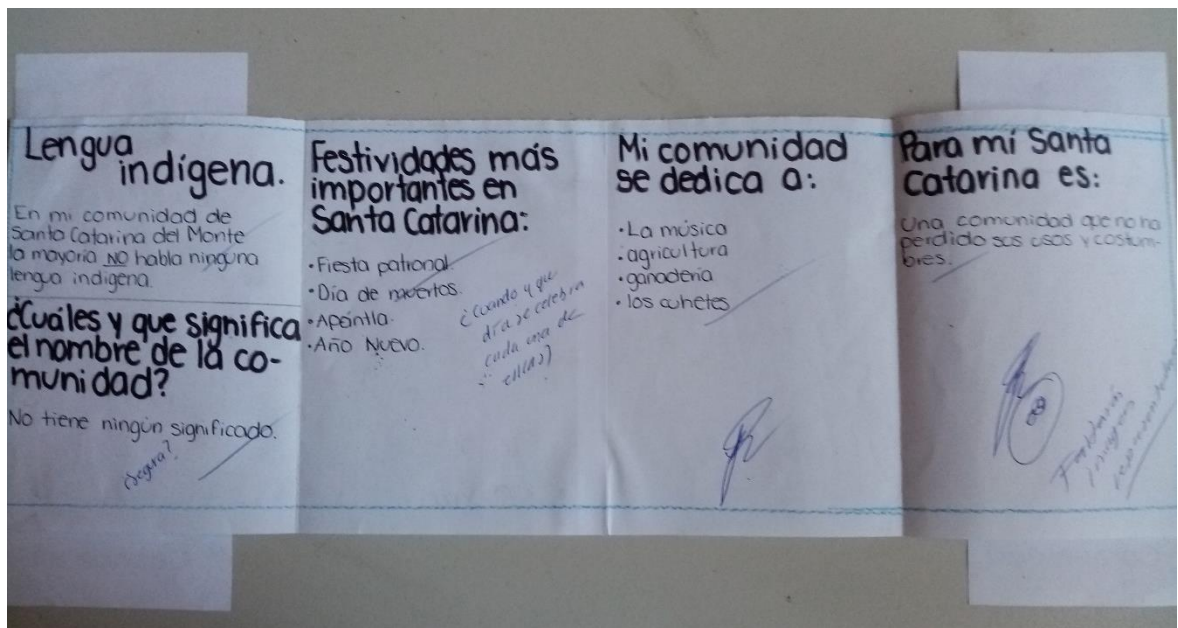 Lengua
indígena.
En mi comunidad de
Santa Catarina del Monte
la mayoría NO habla ninguna
lengua indígena.
¿Cuáles y que significa
el nombre de la co-
munidad?
No tiene ningún significado.
¿Segura?
Festividades más
importantes en
Santa Catarina:
·Fiesta patronal.
·Día de muertos.
·Apantla.
·Año Nuevo.
¿Cuando y que
día se celebra
cada una de
ellas?
Mi comunidad
se dedica a:
·La música
·agricultura
·ganadería
·los cuhetes
Para mí Santa
Catarina es:
Una comunidad que no ha
perdido sus usos y costum-
bres.
Faltaron
imagenes